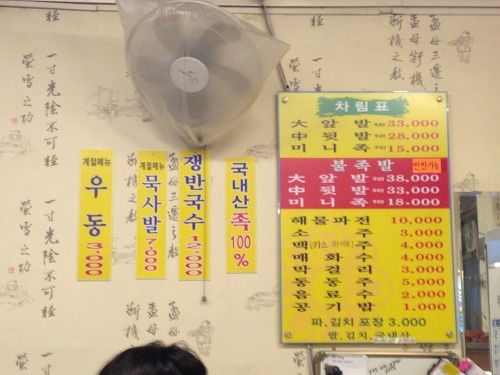 차림표
大 앞 발 33,000
中 뒷 발 28,000
미 니 족 15,000
불족발 반반가능
大 앞 발 38,000
中 뒷 발 33,000
미 니 족 18,000
해물파전 10,000
소주 3,000
맥(카스 하이트)주 4,000
매화수 4,000
막걸리 3,000
동동주 5,000
음료수 2,000
공기밥 1,000
파.김치 포장 3.000
쌀.김치.국내산
계절메뉴
우동
3,000
계절메뉴
묵사발
7,000
쟁반국수
12,000
국내산
족
100
%
一寸光陰不可輕
螢雪之功
孟母三遷之敎
孟母斷機之敎